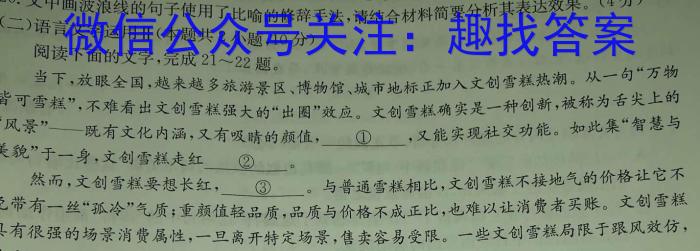 文中画波浪线的句子使用了比喻的修辞手法,请结合材料简要分析其表达效果。(4分)
(二)语言文字运用Ⅱ(本题共2小题,10分)
微信公众号关注:趣找答案
阅读下面的文字,完成21~22题。
当下,放眼全国,越来越多旅游景区、博物馆、城市地标正加入文创雪糕热潮。从一句“万物
皆可雪糕”,不难看出文创雪糕强大的“出圈”效应。文创雪糕确实是一种创新,被称为舌尖上的
“风景”——既有文化内涵,又有吸睛的颜值,①,又能实现社交功能。如此集“智慧与
美貌”于一身,文创雪糕走红②。
然而,文创雪糕要想长红,③。与普通雪糕相比,文创雪糕不接地气的价格让它不
免带有一丝“孤冷”气质;重颜值轻品质,品质与价格不成正比,也难以让消费者买账。文创雪糕
具有很强的场景消费属性,一旦离开特定场景,售卖容易受限。一些文创雪糕局限于跟风效仿,